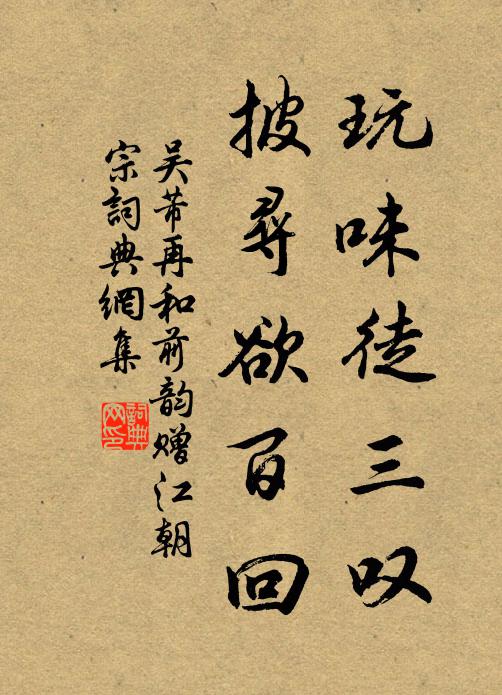 玩味徒三叹
披寻欲百回
吴芾再和前韵赠江朝
宗词典網集
詞典网印